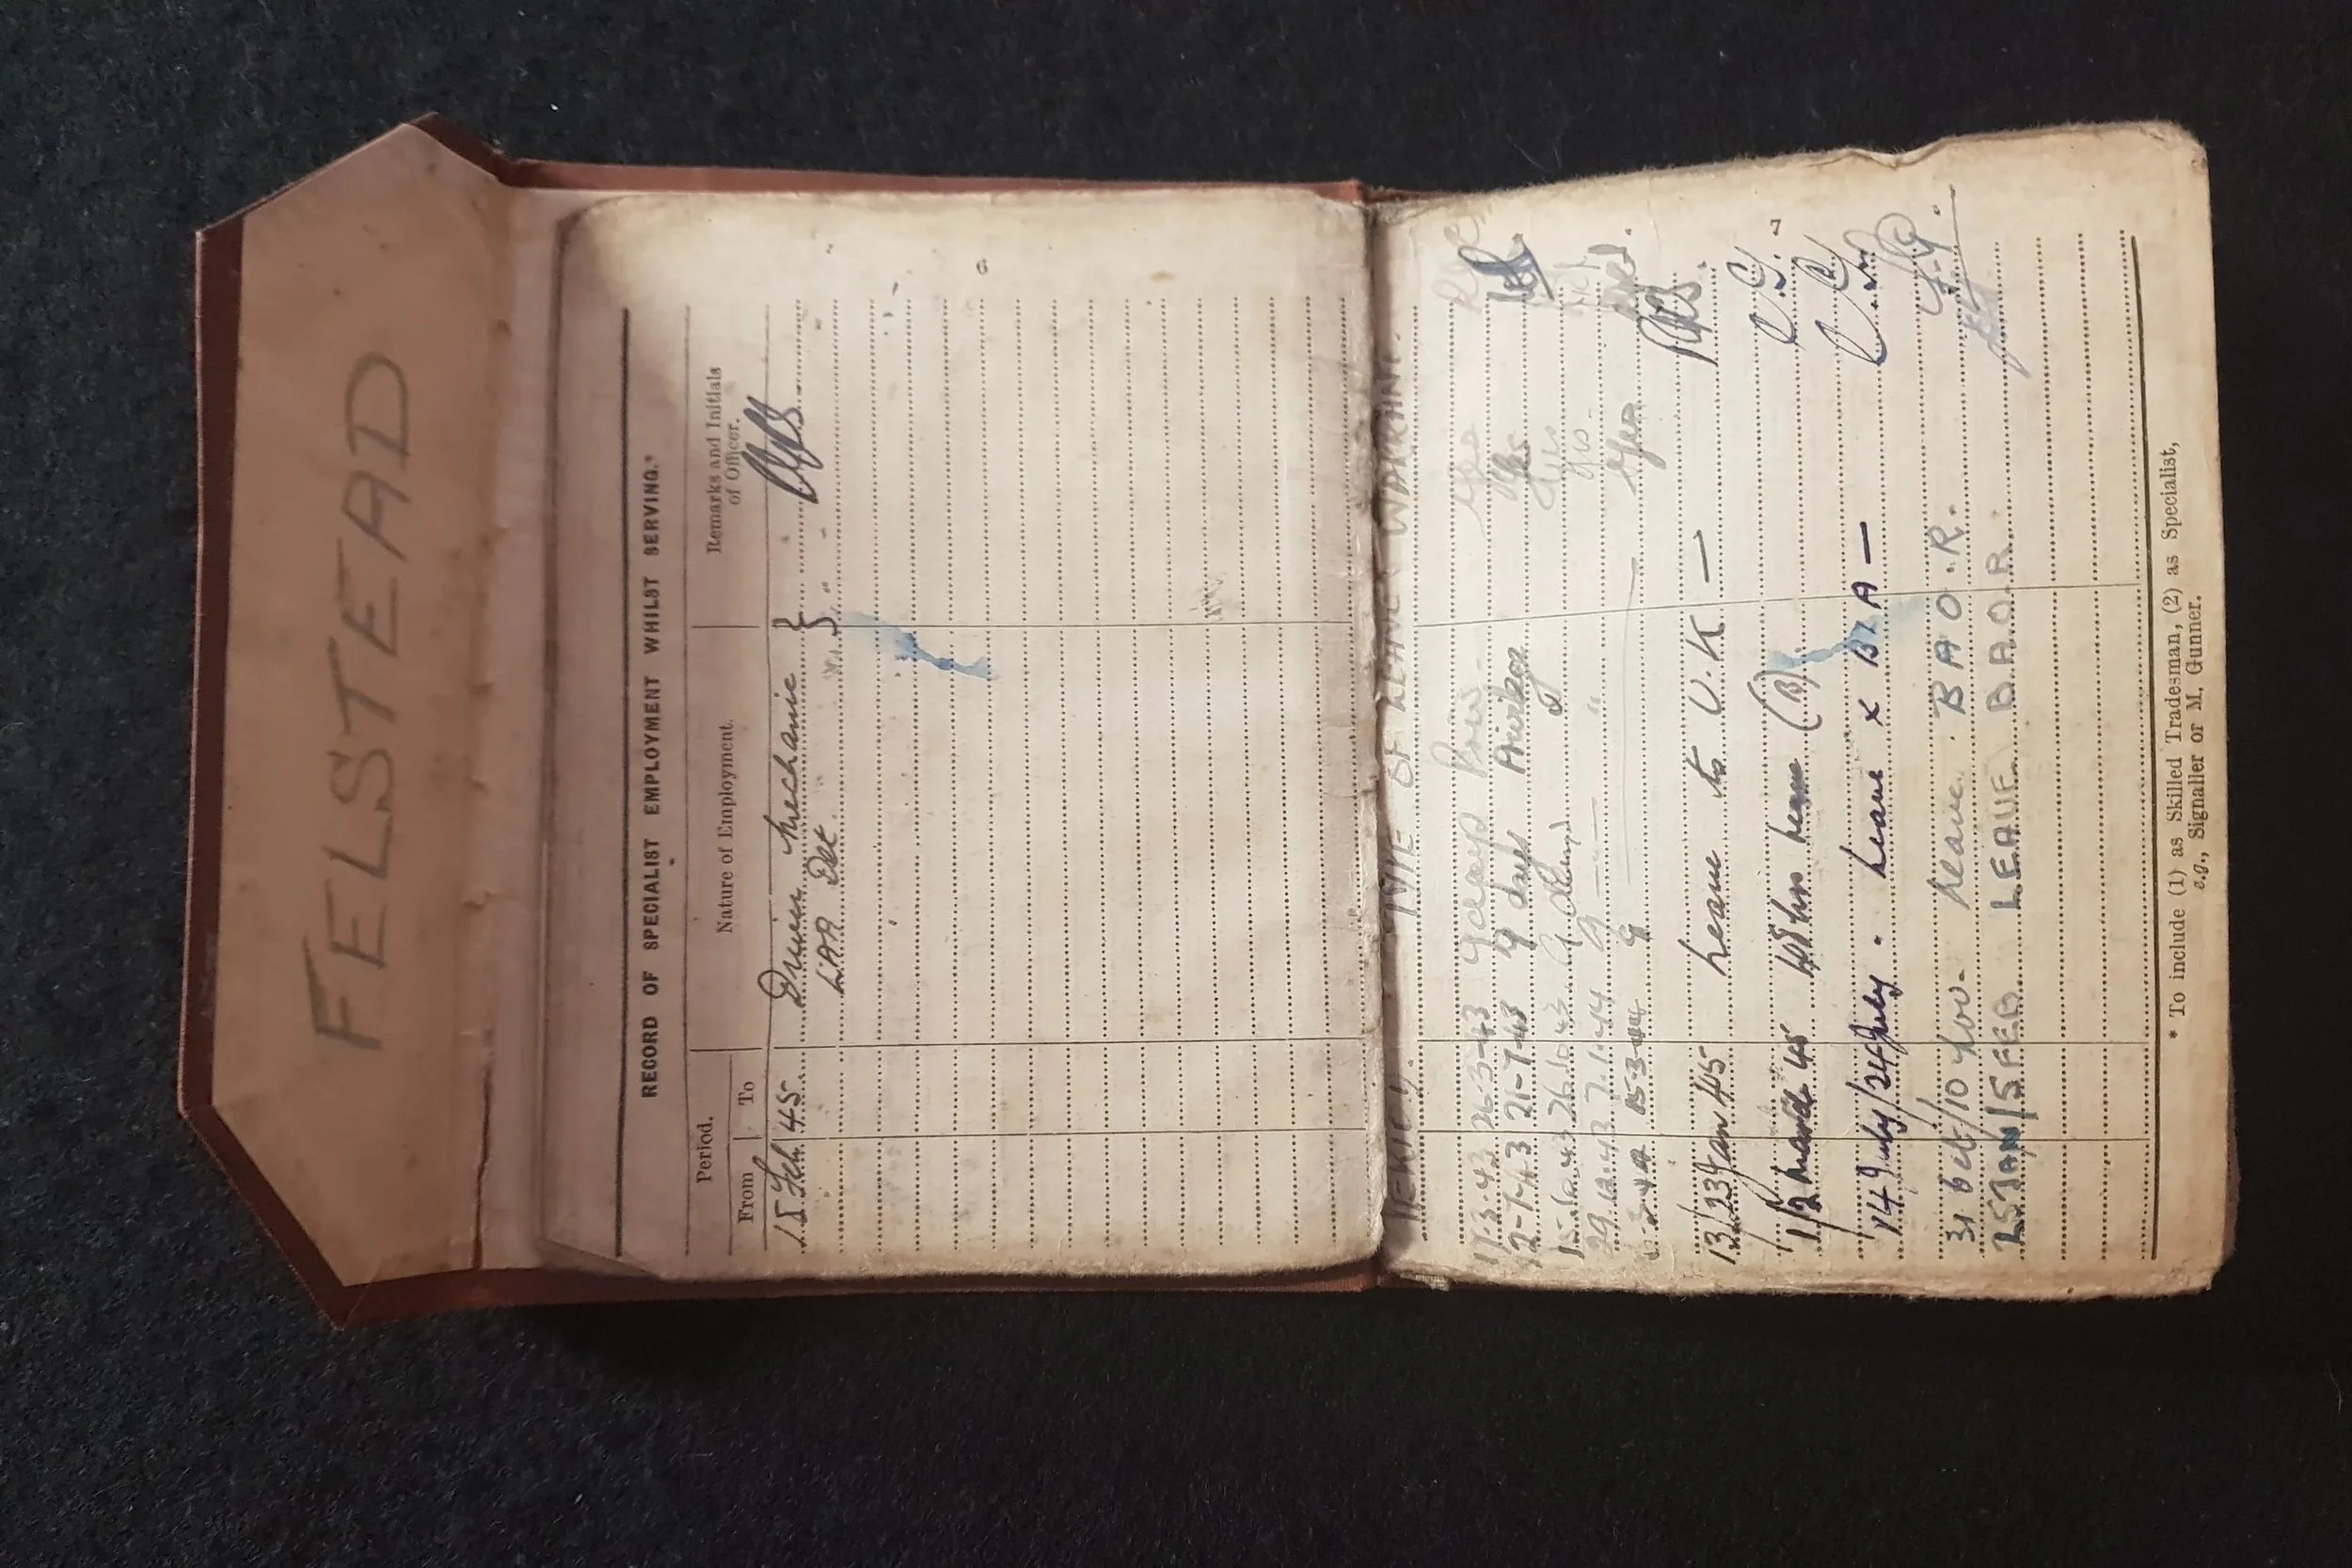 FELSTEAD
6
RECORD OF SPECIALIST EMPLOYMENT WHILST SERVING.*
Period. Nature of Employment. Remarks and Initials of Officer.
From To
15 Feb 45 Driver Mechanic
LAA Det
7
PERIOD. TYPE OF LEAVE WARRANT.
17-3-43 26-3-43 9 days Priv- Yes
12-7-43 21-7-43 9 days Privilege Yes
26.10.43 9 Yes
29.12.43 7.1.44 9 "
15-3-44 9 Yes
13/23 Jan 45 Leave to U.K —
1/2 March 45 48 hrs leave (B)
14 July/24 July. Leave x BLA —
31 Oct/10 Nov- Leave. B A O. R.
15 JAN/5 FEB LEAVE B.A.O.R.
* To include (1) as Skilled Tradesman, (2) as Specialist,
e.g., Signaller or M. Gunner.